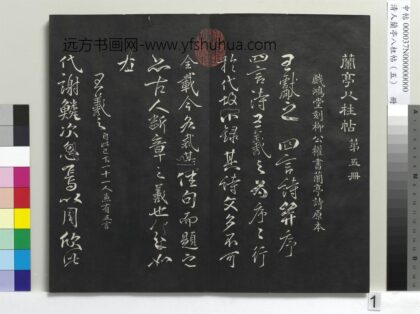 远方书画网-www.yfshuhua.com
蘭亭八柱帖 第五冊
戲鴻堂刻柳公權書蘭亭詩原本
王獻之四言詩並序
四言詩王羲之為序序行
於代故不錄其詩文多不可
全載今各裁其佳句而題之
亦古人斷章之義也
王羲之 自此已下十一人並有五言
代謝鱗次忽焉以周欣此
1